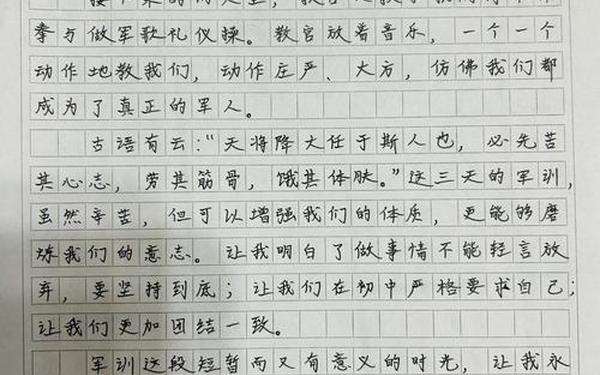 拳与做军歌礼仪操。教官放着音乐，一个一个
动作地教我们，动作庄严、大方，仿佛我们都
成为了真正的军人。
古语有云：“天将降大任于斯人也，必先苦
其心志，劳其筋骨，饿其体肤。”这三天的军训，
虽然辛苦，但可以增强我们的体质，更能够磨
炼我们的意志。让我明白了做事情不能轻言放
弃，要坚持到底；让我们在初中严格要求自己；
让我们更加团结一致。
军训这段短暂而又有意义的时光，让我永